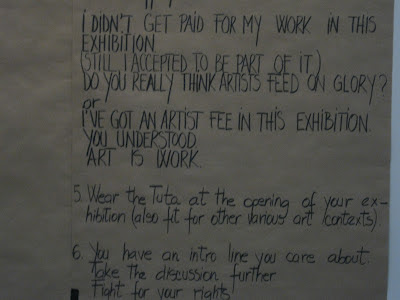 I DIDN'T GET PAID FOR MY WORK IN THIS
EXHIBITION
(STILL I ACCEPTED TO BE PART OF IT.)
DO YOU REALLY THINK ARTISTS FEED ON GLORY?
or
I'VE GOT AN ARTIST FEE IN THIS EXHIBITION.
YOU UNDERSTOOD
ART IS WORK.
5. Wear the Tuta at the opening of your ex-
hibition (also fit for other various art contexts).
6. You have an intro line you care about.
Take the discussion further
Fight for your rights!